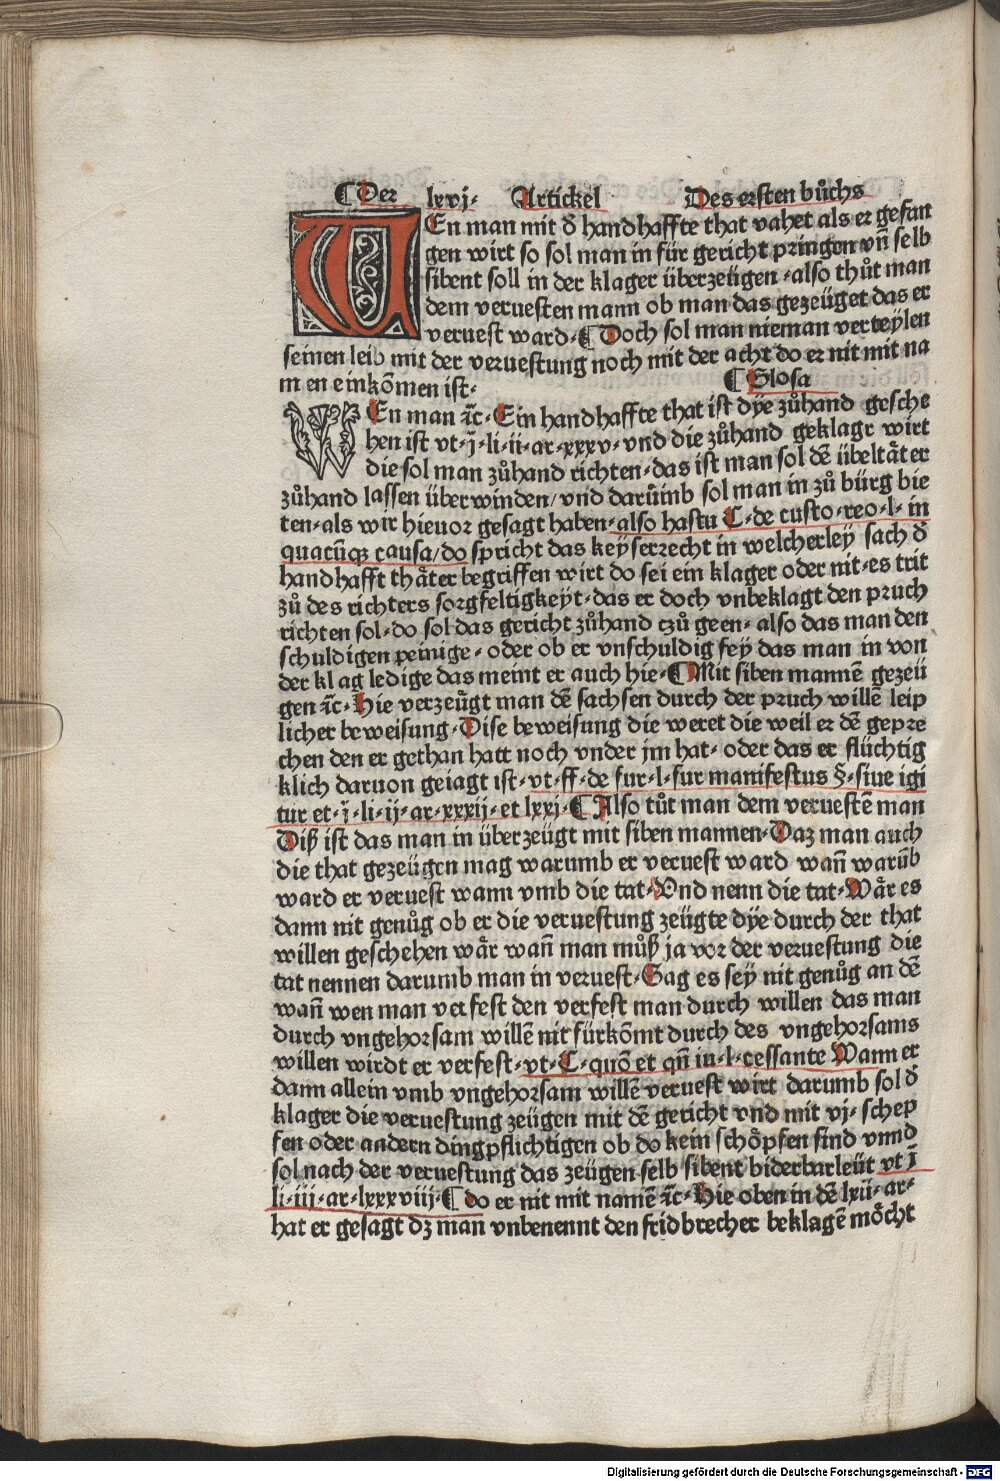 ¶Der lxvj· Artickel Des ersten bůchs
WEn man mit d̕ handhaffte that vahet als er gefan
gen wirt so sol man in für gericht pringen vn̄ selb
sibent soll in der klager überzeügen·also thůt man
dem veruesten mann ob man das gezeüget das er
veruest ward·¶Doch sol man nieman verteylen
seinen leib mit der veruestung noch mit der acht do er nit mit na
men einkōmen ist·
¶Glosa
WEn man ꝛc̄·Ein handhaffte that ist dÿe zůhand gesche
hen ist vt·j̄·li·ii·ar·xxxv·vnd die zůhand geklagt wirt
die sol man zůhand richten·das ist man sol dē übeltåter
zůhand lassen überwinden/vnd darūmb sol man in zů bürg bie
ten·als wir hieuor gesagt haben·also hastu C·de custo·reo·l·in
quacūqꝫ causa/do spricht das keyserrecht in welcherley sach d̕
handhafft thåter begriffen wirt do sei ein klager oder nit·es trit
zů des richters sorgfeltigkeyt·das er doch vnbeklagt den pruch
richten sol·do sol das gericht zůhand czů geen·also das man den
schuldigen peinige·oder ob er vnschuldig sey das man in von
der klag ledige das meint er auch hie·¶Mit siben mannē gezeü
gen ꝛc̄·Hie verzeügt man dē sachsen durch der pruch willē leip
licher beweisung·Dise beweisung die weret die weil er dē gepre
chen den er gethan hatt noch vnder jm hat·oder das er flüchtig
klich daruon geiagt ist·vt·ff·de fur·l·fur manifestus §·siue igi
tur et·j̄·li·ij·ar·xxxij·et lxxj·¶Also tůt man dem veruestē man
Diß ist das man in überzeügt mit siben mannen·Daz man auch
die that gezeügen mag warumb er veruest ward wan̄ warūb
ward er veruest wann vmb die tat·Vnd nenn die tat·Wår es
dann nit genůg ob er die veruestung zeügte dÿe durch der that
willen geschehen wår wan̄ man můß ja vor der veruestung die
tat nennen darumb man in veruest·Sag es sey nit genůg an dē
wan̄ wen man verfest den verfest man durch willen das man
durch vngehorsam willē nit fürkōmt durch des vngehorsams
willen wirdt er verfest·vt·C·quō et qn̄ iu·l·cessante Wann er
dann allein vmb vngehorsam willē veruest wirt darumb sol d̕
klager die veruestung zeügen mit dē gericht vnd mit vj·schep
fen oder andern dingpflichtigen ob do kein schöpfen sind vnnd
sol nach der veruestung das zeügen selb sibent biderbarleüt vt j̄
li·iij·ar·lxxxviij·¶do er nit mit namē ꝛc̄·Hie oben in dē lxii·ar·
hat er gesagt dꝫ man vnbenennt den fridbrecher beklagē möcht
Digitalisierung gefördert durch die Deutsche Forschungsgemeinschaft - DFG